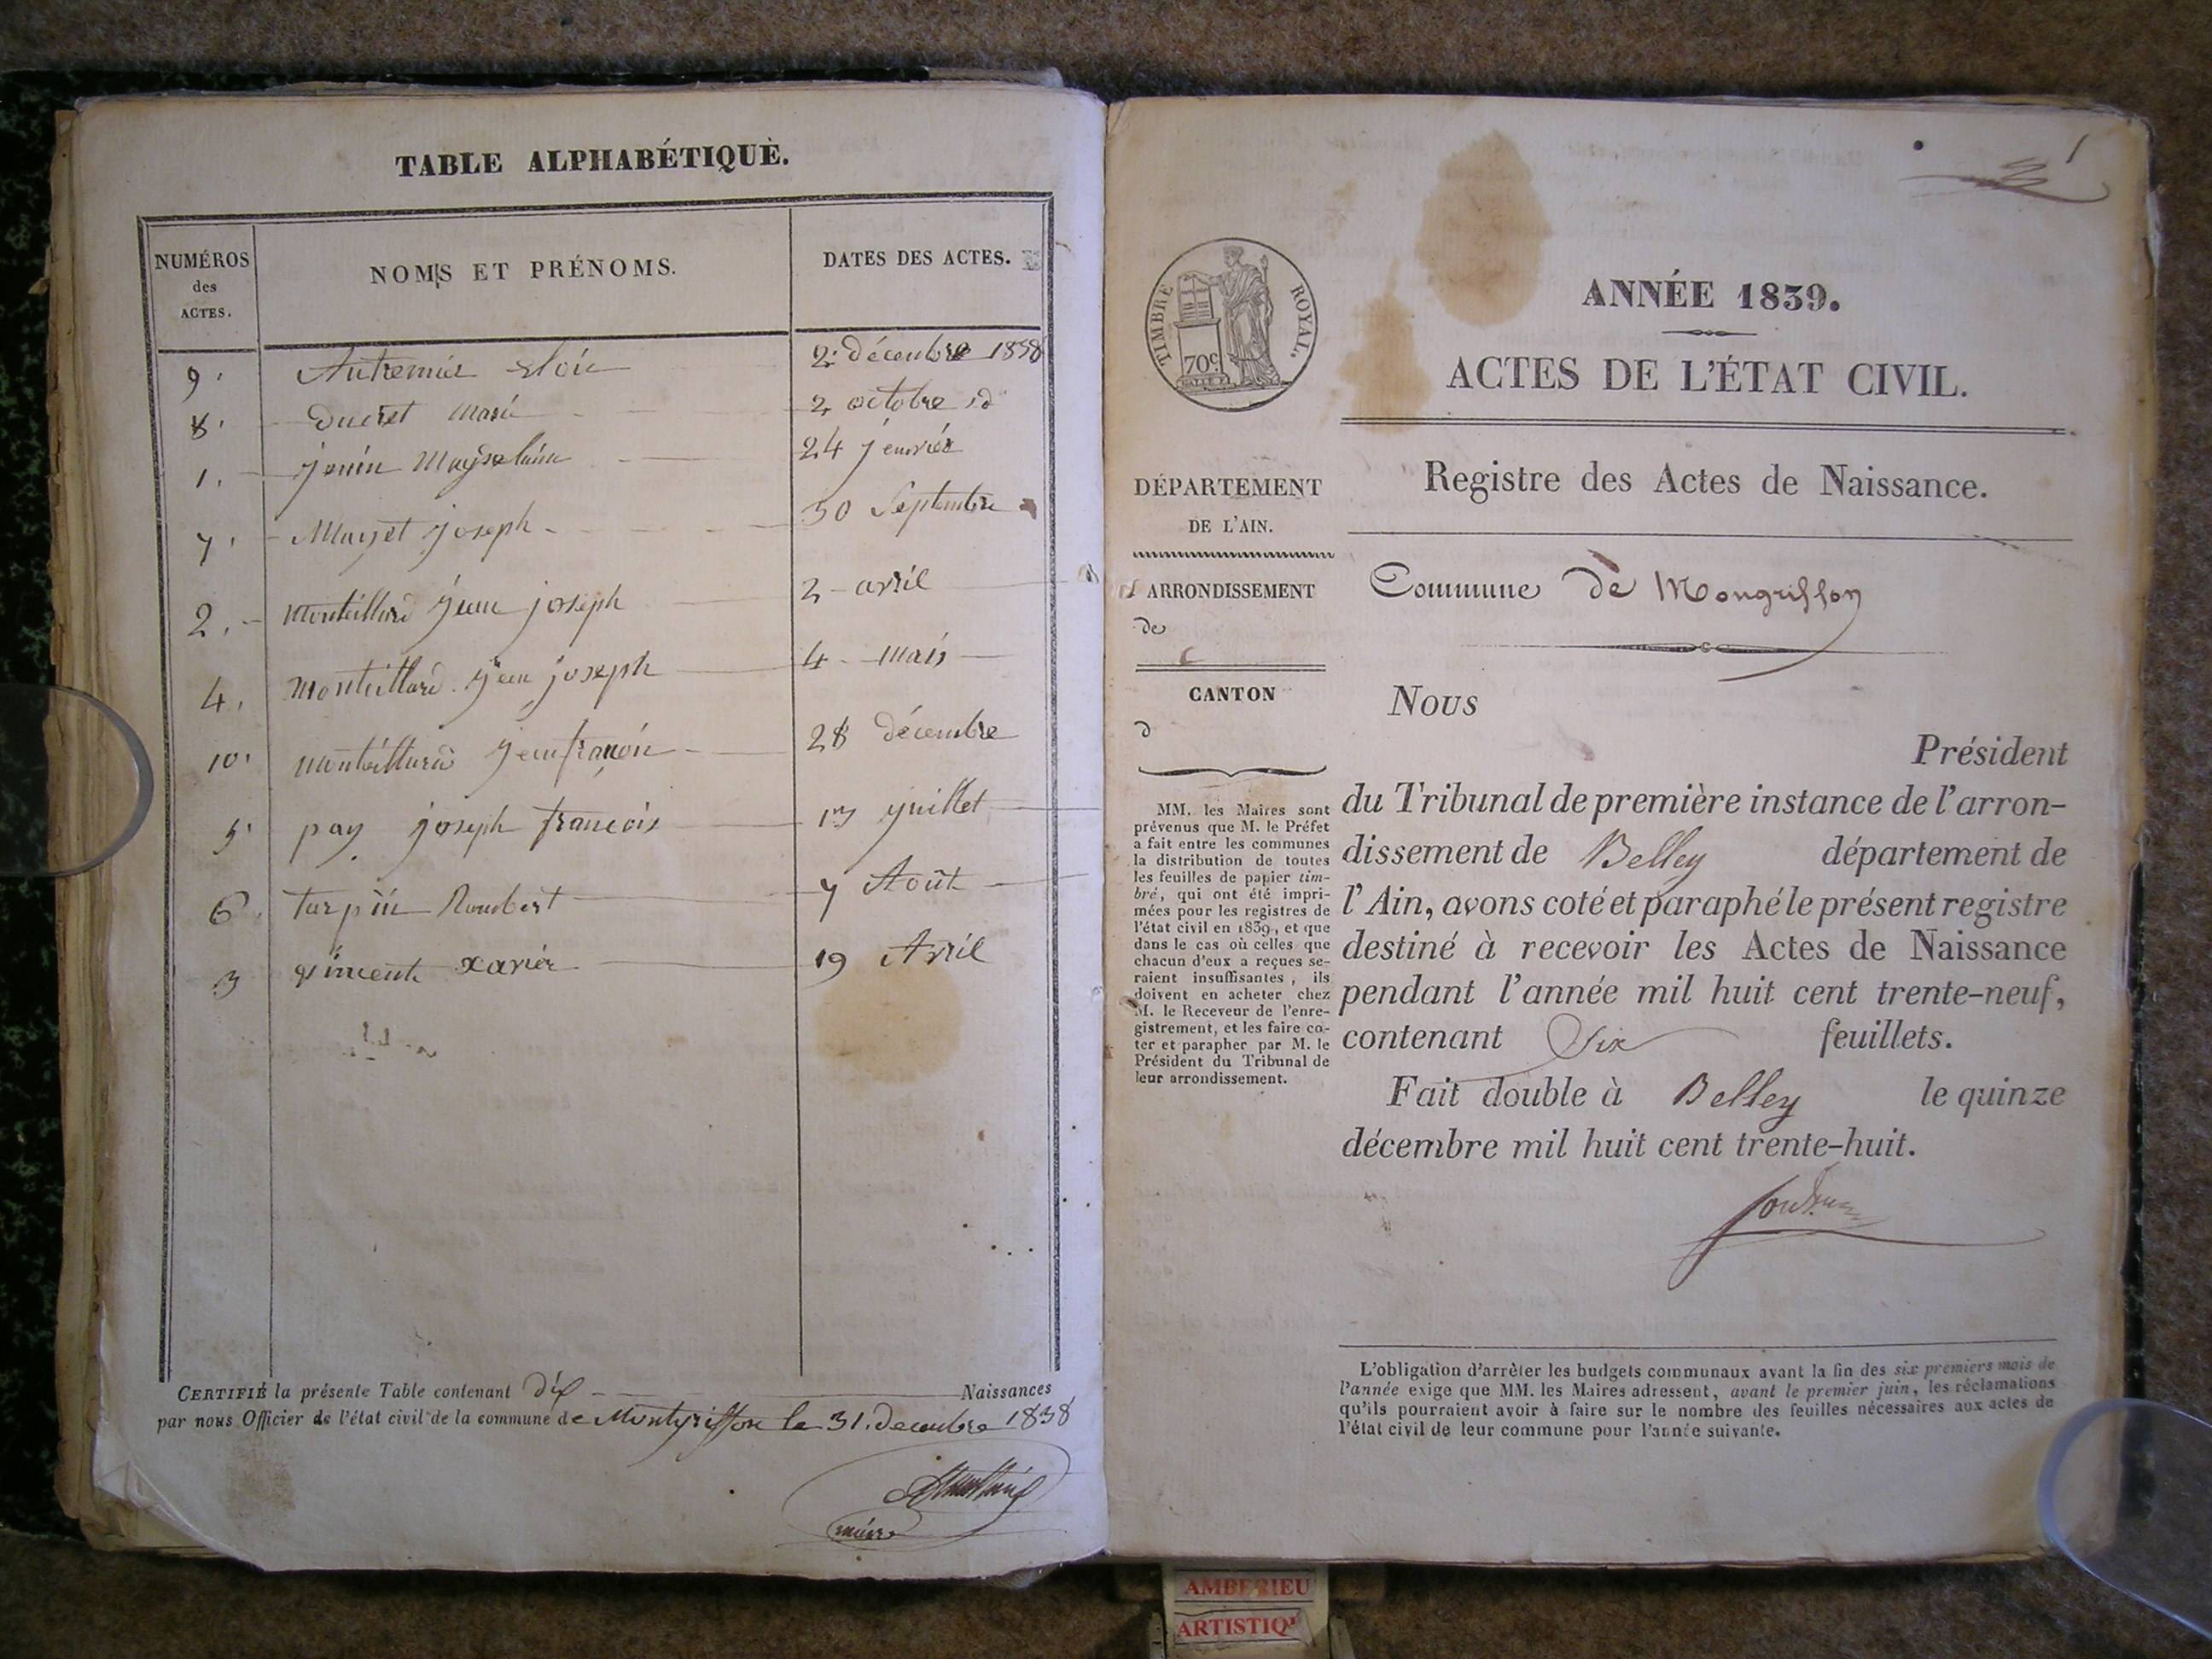 TABLE ALPHABÉTIQUE.
NUMÉROS des ACTES.
NOMS ET PRÉNOMS.
DATES DES ACTES.
9. Autemier Eloïe 2. décembre 1838
8. Ducret Marie 2 octobre id
1. jenin Magdelaine 24 jenvier
7. Muyset joseph 30 Septembre
2. Monteillard jean joseph 2 avril
4. Monteillard jean joseph 4 mais
10. monteillard jean françois 28 décembre
5. pay joseph françois 1er juillet
6. turpin Rambert 7 Août
3 vincent xavier 19 Avril
CERTIFIÉ la présente Table contenant dix Naissances
par nous Officier de l'état civil de la commune de Montgriffon le 31. decembre 1838
maire
1
TIMBRE ROYAL.
70c.
ANNÉE 1839.
ACTES DE L'ÉTAT CIVIL.
Registre des Actes de Naissance.
DÉPARTEMENT
DE L'AIN.
ARRONDISSEMENT
de
CANTON
d
MM. les Maires sont
prévenus que M. le Préfet
a fait entre les communes
la distribution de toutes
les feuilles de papier tim-
bré, qui ont été impri-
mées pour les registres de
l'état civil en 1839, et que
dans le cas où celles que
chacun d'eux a reçues se-
raient insuffisantes, ils
doivent en acheter chez
M. le Receveur de l'enre-
gistrement, et les faire co-
ter et parapher par M. le
Président du Tribunal de
leur arrondissement.
Commune de Mongriffon
Nous
Président
du Tribunal de première instance de l'arron-
dissement de Belley département de
l'Ain, avons coté et paraphé le présent registre
destiné à recevoir les Actes de Naissance
pendant l'année mil huit cent trente-neuf,
contenant Six feuillets.
Fait double à Belley le quinze
décembre mil huit cent trente-huit.
L'obligation d'arrêter les budgets communaux avant la fin des six premiers mois de
l'année exige que MM. les Maires adressent, avant le premier juin, les réclamations
qu'ils pourraient avoir à faire sur le nombre des feuilles nécessaires aux actes de
l'état civil de leur commune pour l'année suivante.
AMBERIEU
ARTISTIQ